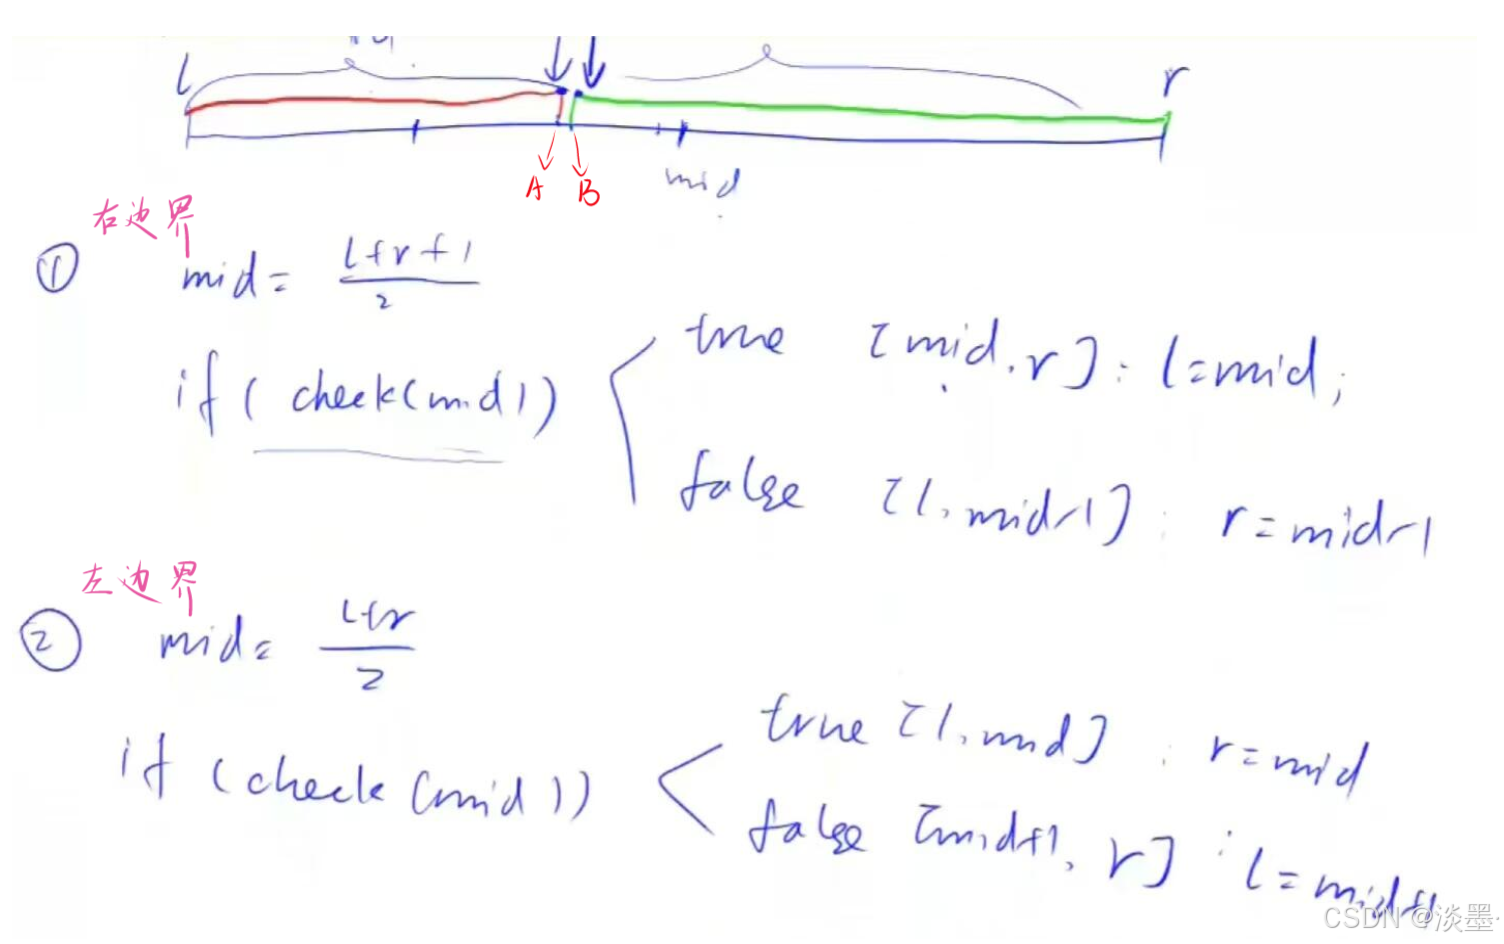 l r
A B mid
右边界
① mid = l+r+1 / 2
if ( check(mid) ) true [mid, r] : l=mid;
false [l, mid-1] : r=mid-1
左边界
② mid = l+r / 2
if (check (mid)) true [l, mid] : r=mid
false [mid+1, r] : l=mid+1
CSDN @淡墨